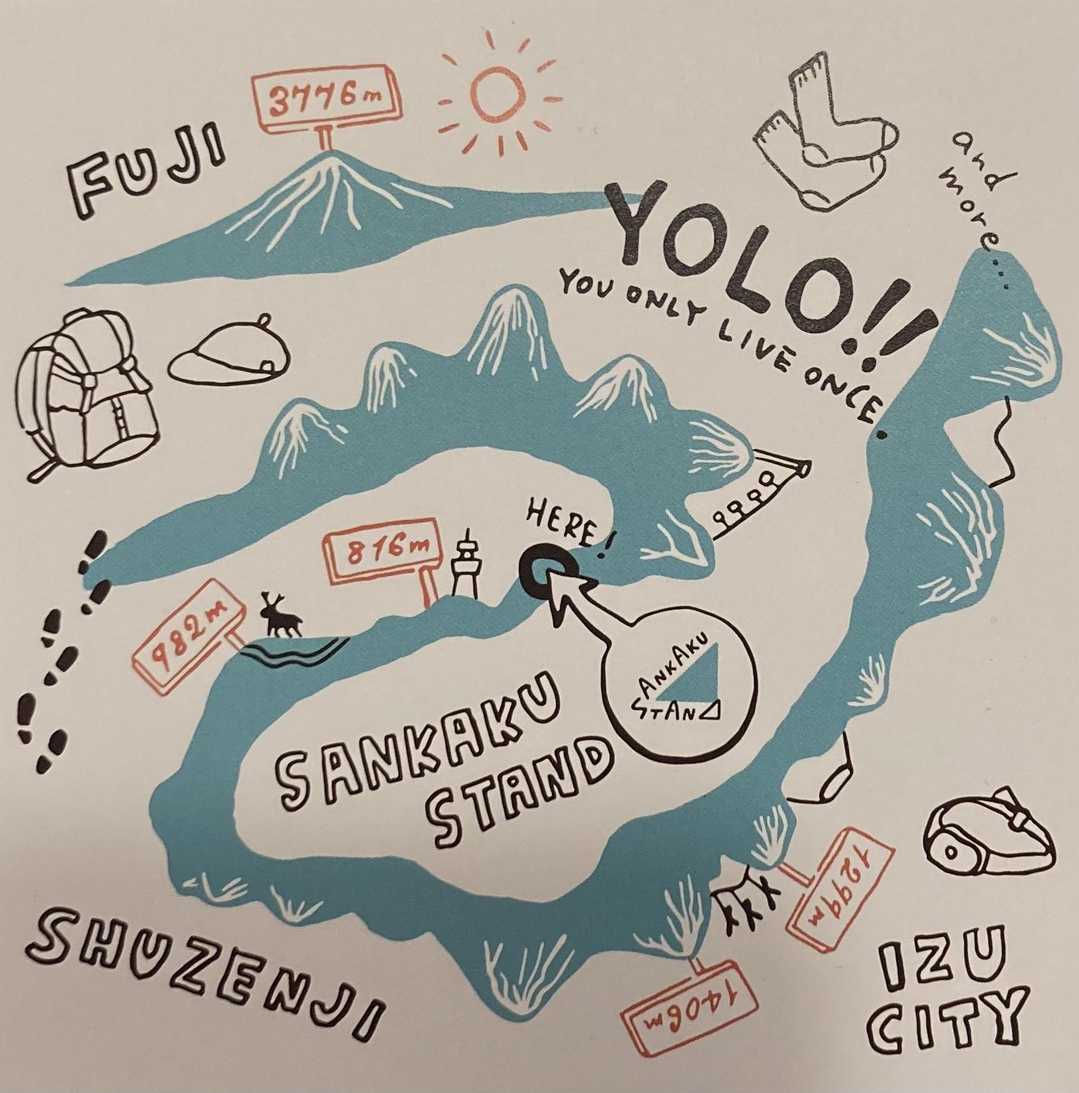 3776m
FUJI
and
more...
YOLO!!
YOU ONLY LIVE ONCE.
HERE!
816m
982m
SANKAKU
STAND
SANKAKU
STAND
1299m
1406m
SHUZENJI
IZU
CITY